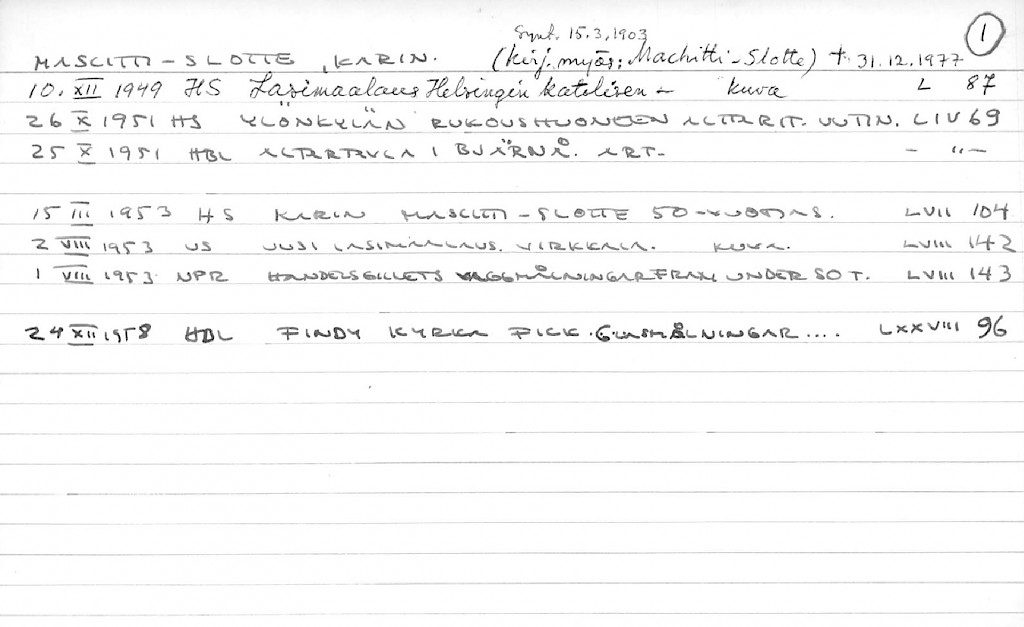 Synt. 15.3.1903
1
MASCITTI-SLOTTE, KARIN. (kirj. myös: Machitti-Slotte) † 31.12.1977
10. XII 1949 HS Lasimaalaus Helsingin katolisen - kuva L 87
26 X 1951 HS YLÖNKYLÄN RUKOUSHUONEEN ALTTARIT. UUTIN. LIV 69
25 X 1951 HBL ALTARTAVLA I BJÄRNÅ. ART- - " -
15 III 1953 HS KARIN MASCITTI-SLOTTE 50-VUOTIAS. LVII 104
2 VIII 1953 US UUSI LASIMAALAUS. VIRKKALA. KUVA. LVIII 142
1 VIII 1953 NPR HANDELSGILLETS VÄGGMÅLNINGAR FRAM UNDER SOT. LVIII 143
24 XII 1958 HBL FINBY KYRKA FICK GLASMÅLNINGAR .... LXXVIII 96